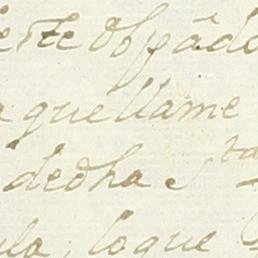 este Obpãdo
aquellame
dedha S ta
ula, loque